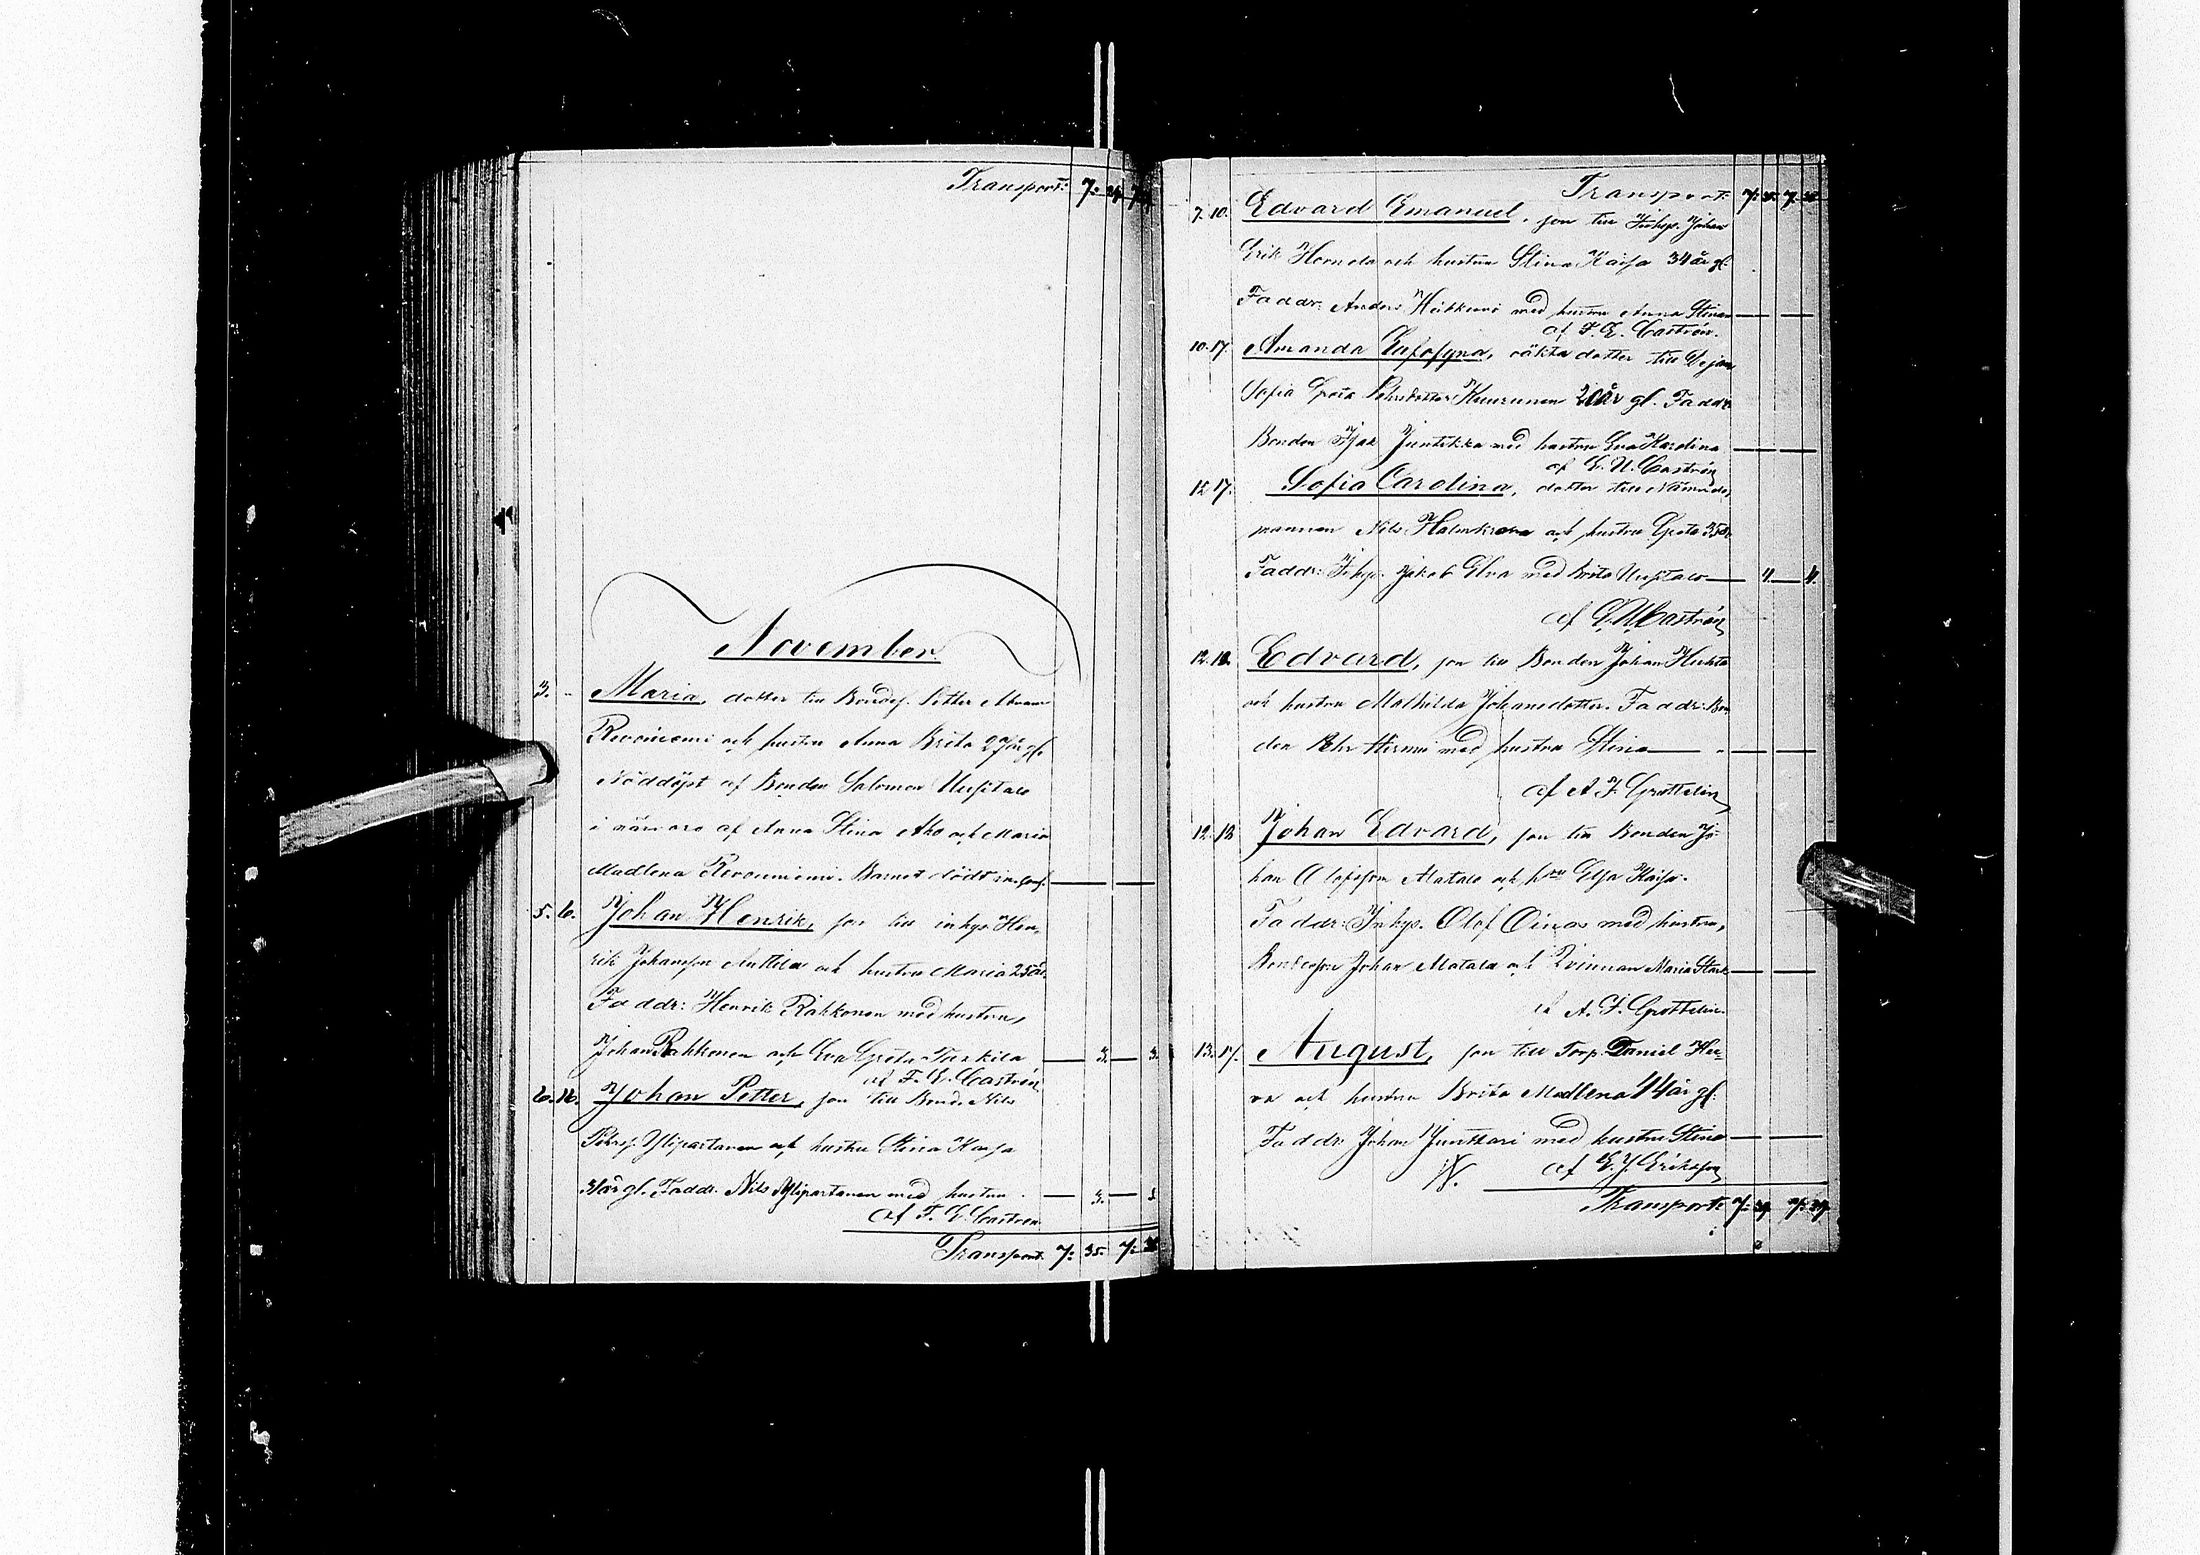 Transport: 7: 29. 7:
November.
3. Maria, dotter till Bondes. Petter Abram
Rovainiemi och hustru Anna Brita 27 år gl.
Nöddöpt af Bonden Salomon Uusitalo
i närvaro af Anna Stina Aho och Maria
Madlena Rovainiemi. Barnet dödt
5. 6. Johan Henrik, son till inhys. Hen-
rik Johansson Anttila och hustru Maria 25 år.
Faddr: Henrik Rahkonen med hustru,
Johan Rahkonen och Eva Greta 3. 3.
af F. E. Castrén
6. 16. Johan Petter, son till Bond. Nils
Pehrs. Ylipartanen och hustru Stina Kaisa
31 år gl. Faddr. Nils Ylipartanen med hustru. 3. 3
af F. E. Castrén
Transport. 7: 35. 7:
Transport: 7: 7:
7. 10. Edvard Emanuel, son till Inhys. Johan
Erik och hustru Stina Kaisa 34 år gl.
Faddr. Anders med hustru Anna Stina
af F. E. Castrén.
10. 17. Amanda Eufosyna, oäkta dotter till Pejan
Sofia Greta Pehrsdotter Kuurunen 20 år gl. Faddr.
Bonden Isak Juntikka med hustru Eva Karolina
af E. U. Castrén
12 17. Sofia Carolina, dotter till Nämnde-
mannen Nils och hustru Greta 35 år
Faddr: Inhys. Jakob med Brita Uusitalo 4. 4.
af E. U. Castrén
12. 18. Edvard, son till Bonden Johan Huhta
och hustru Mathilda Johansdotter. Faddr: Bon-
den Pehr Hirmu med hustru Stina
af A. F. Grottelin
12. 18 Johan Edvard, son till Bonden Jo-
han Olofsson Matala och h:ru Elsa Kaisa.
Faddr: Inhys. Olof Oinas med hustru,
Bondeson Johan Matala och Qvinnan Maria Stark
af A. F. Grottelin.
13. 17. August, son till Torp. Daniel Her-
va och hustru Brita Madlena 44 år gl.
Faddr: Johan Junttari med hustru Stina
af E. J. Eriksson
Transport: 7: 39. 7: 39.